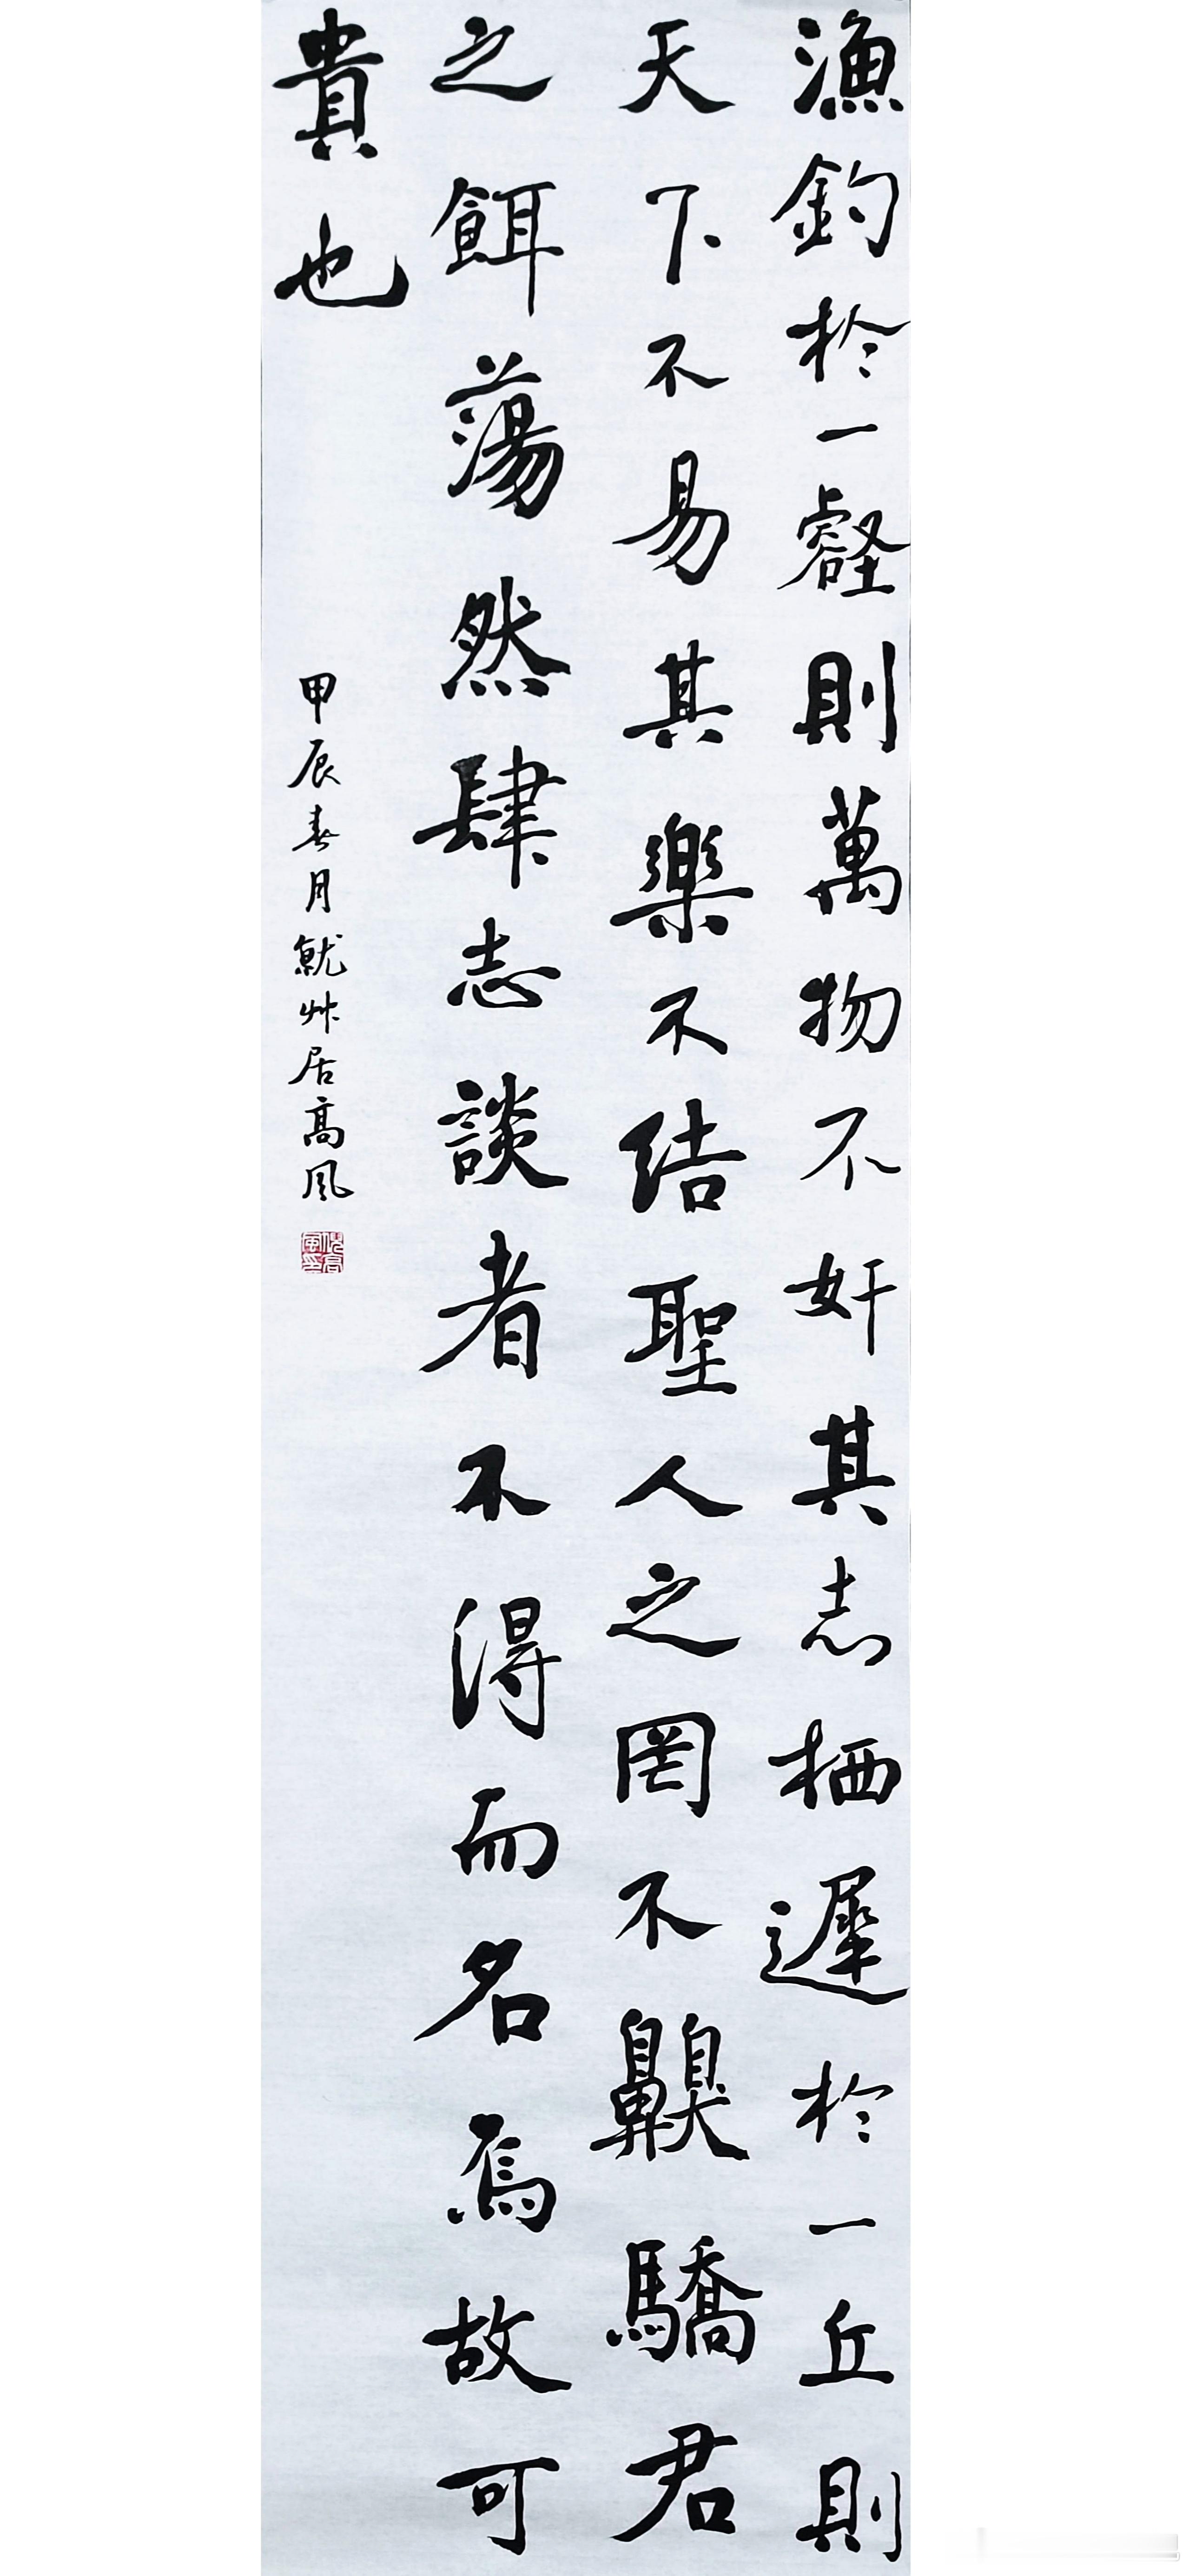 漁釣於一壑則萬物不奸其志栖遲於一丘則
天下不易其樂不絓聖人之罔不齅驕君
之餌蕩然肆志談者不得而名焉故可
貴也
甲辰春月就艸居高风